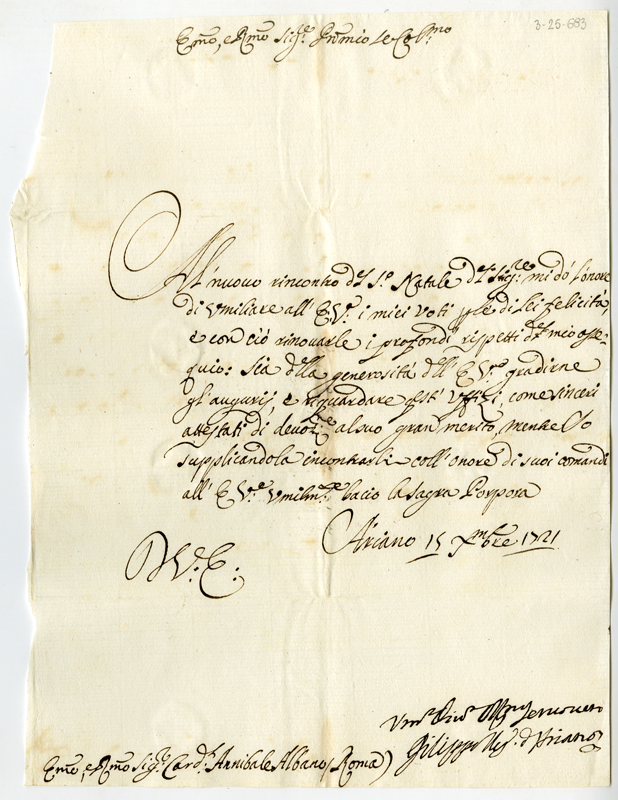 3-25-683
Em̃o, e Rm̃o Sig.re Pron̄mio Le Col.mo
Al nuovo rincontro del S.o Natale del Sig.re mi dò l'onore
di umiliare all' E.V.a i miei voti p le di Lei felicità,
e con ciò rinovarle i profondi rispetti del mio osse-
quio: sia della generosità dell' E.V.a gradirne
gl' augurij, e riguardare quest' uffizi, come sinceri
attestati di devoz.ne al suo gran merito, mentre Io
supplicandola incontrarli coll' onore di suoi comandi
all' E.V.a umilm.te bacio la sagra Porpora
Ariano 15 Xmbre 1721
D V.E.
Um.o Div.o Servitore
Filippo Ves.o d'Ariano
Em̃o, e Rm̃o Sig.re Card.l Annibale Albano (Roma)